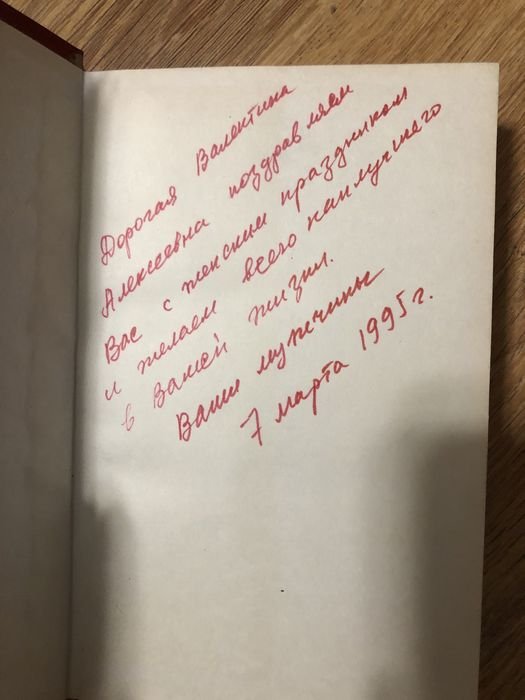 Дорогая Валентина
Алексеевна поздравляем
Вас с женским праздником
и желаем всего наилучшего
в Вашей жизни.
Ваши мужчины
7 марта 1995 г.